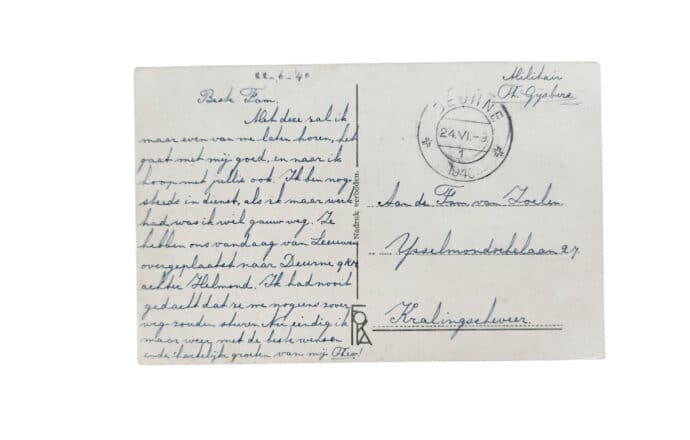 22-6-'40
Beste Fam.
Met deze zal ik
maar even van me laten horen, het
gaat met mij goed, en naar ik
hoop met jullie ook. Ik ben nog
steeds in dienst, als ik maar werk
had was ik wel gauw weg. Ze
hebben ons vandaag van Leeuwen
overgeplaatst naar Deurne 9 KM
achter Helmond. Ik had nooit
gedacht dat ze me nog eens zover
weg zouden sturen. Nu eindig ik
maar weer, met de beste wensen
en de hartelijk groeten van mij Theo!
Nadruk verboden.
FORA
Militair
Th. Gijsbers
DEURNE
24.VI.-9
1
1940
Aan de Fam. van Zoelen
Ysselmondschelaan 27
Kralingscheveer.